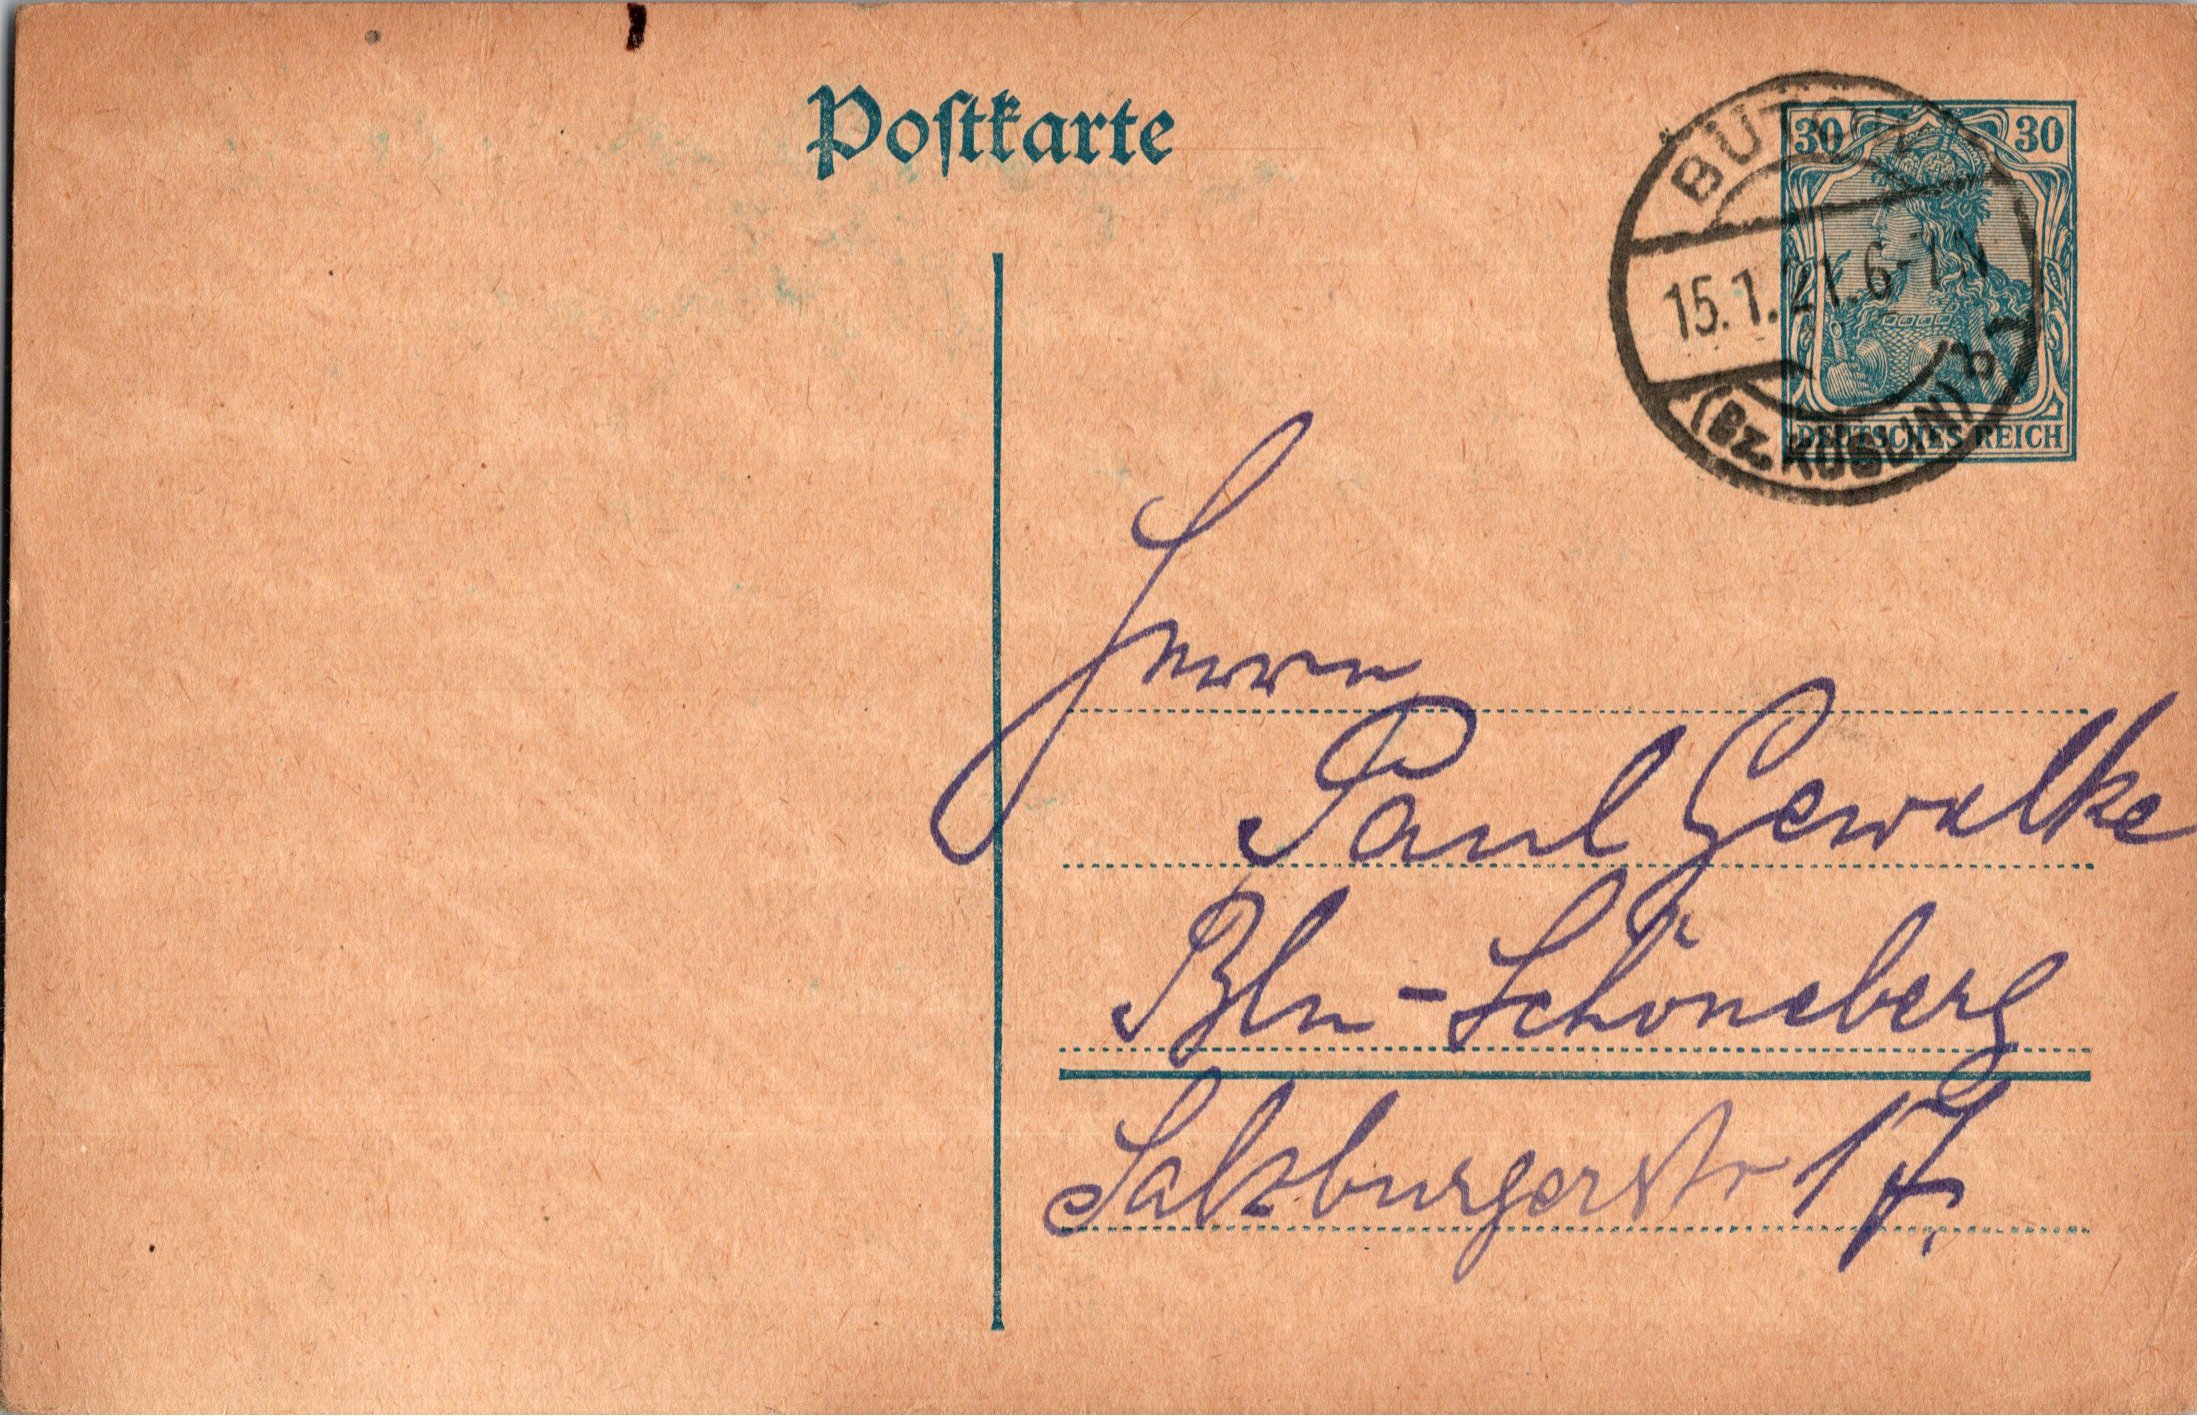 Postkarte
30 30
BÜTOW
15.1.21.6-7N
(Bz. KÖSLIN)
DEUTSCHES REICH
Herrn
Paul Gewalke
Bln-Schöneberg
Salzburgerstr 17.